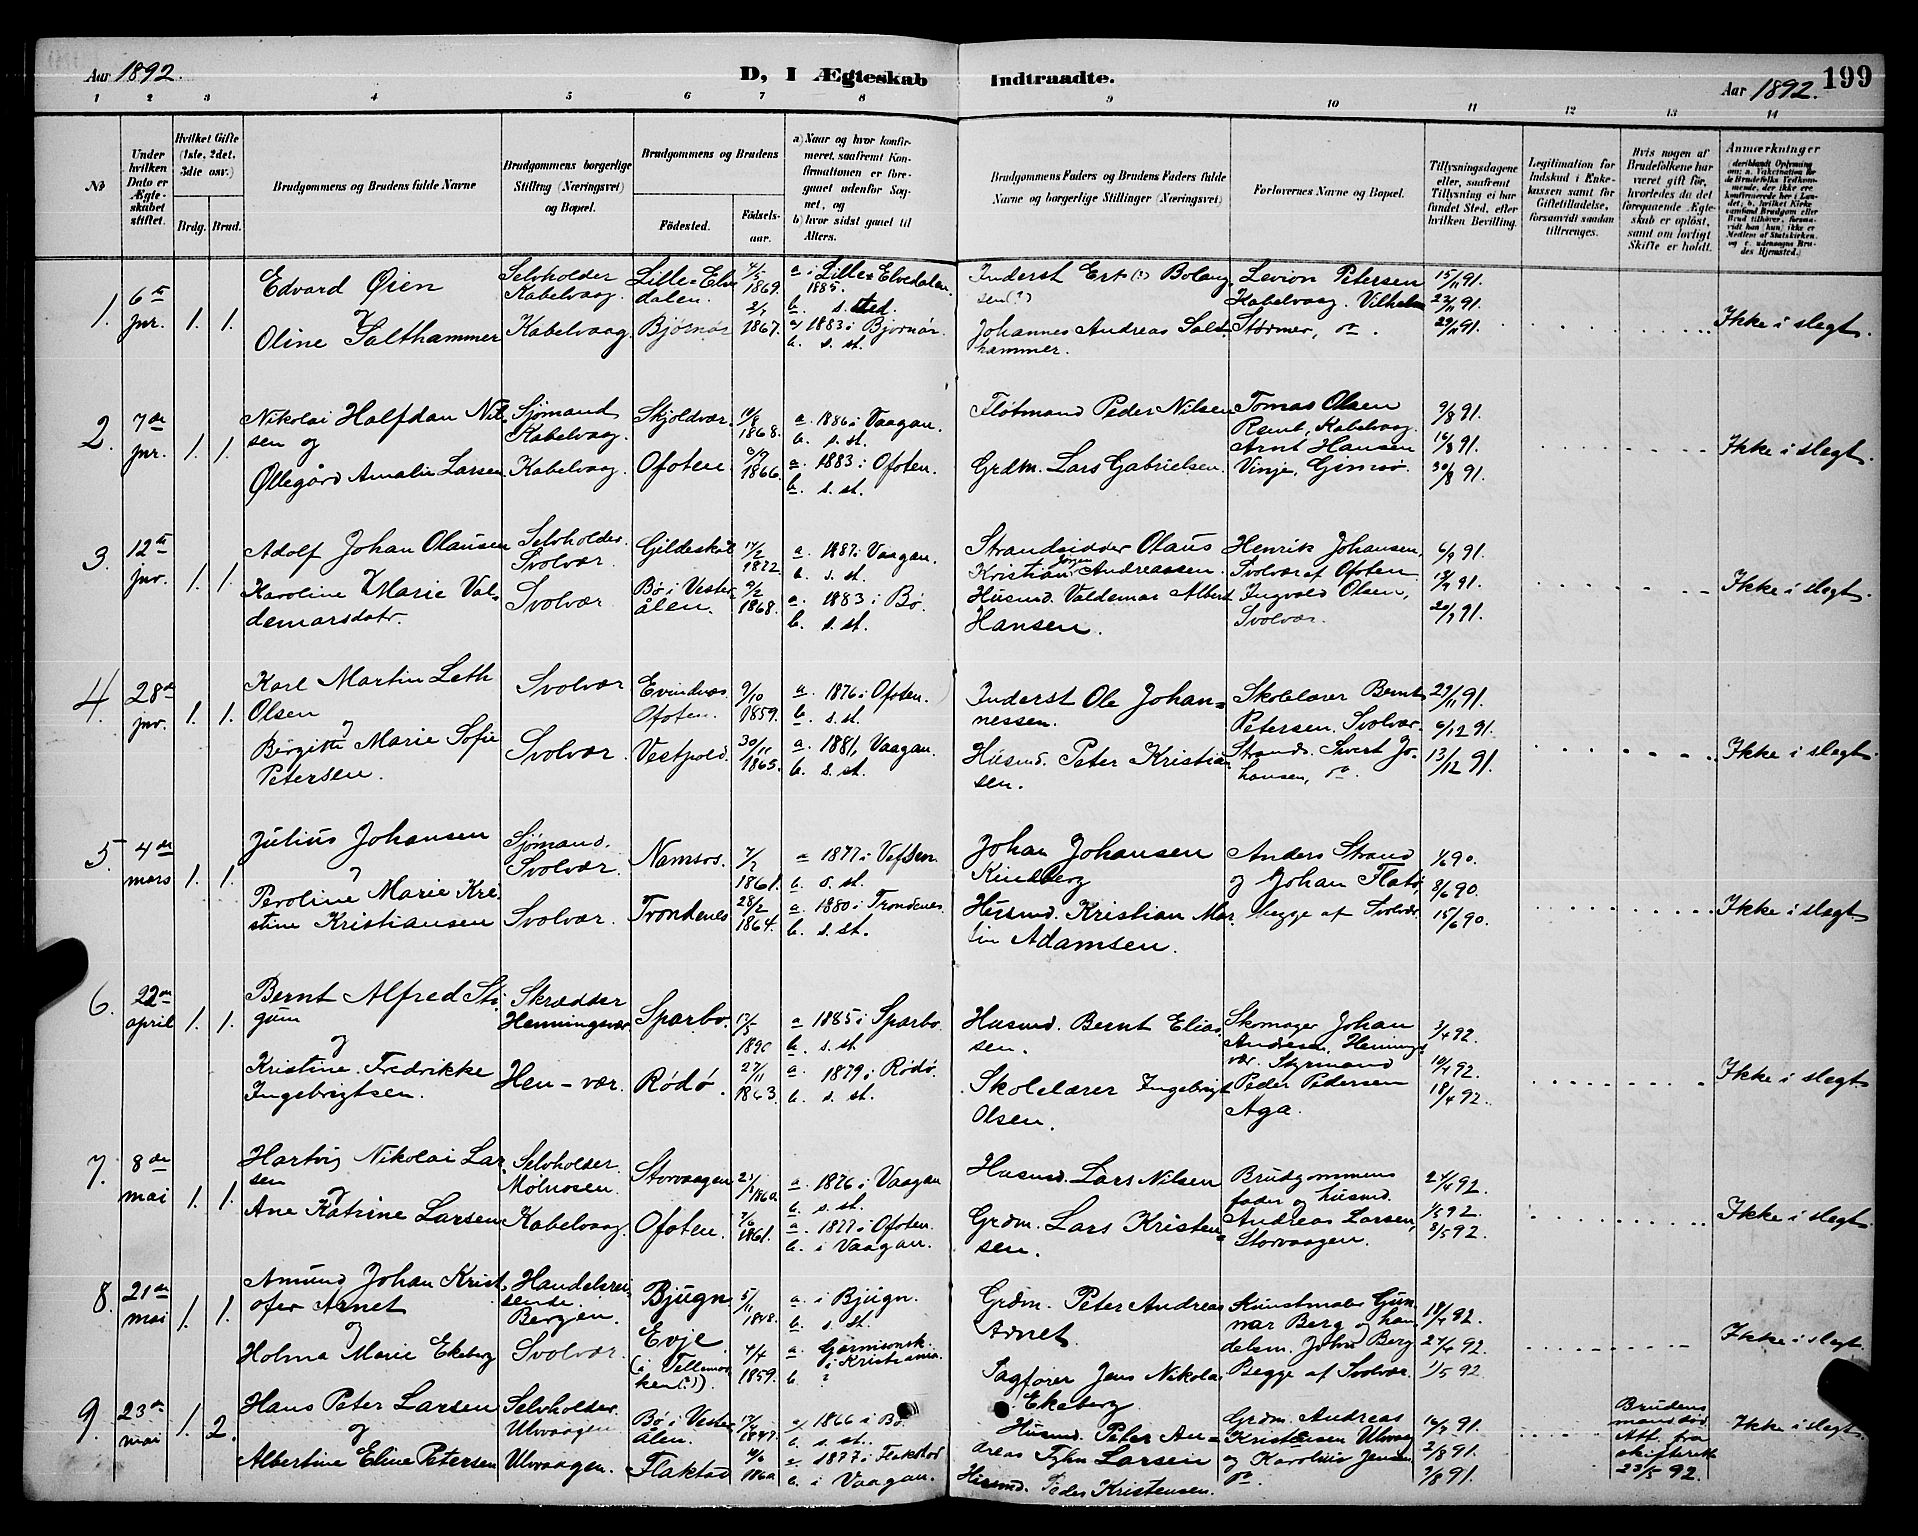 Aar 1892.
D, I Ægteskab Indtraadte.
Aar 1892. 199
1 2 3 4 5 6 7 8 9 10 11 12 13 14
№
Under hvilken Dato er Ægteskabet stiftet.
Hvilket Gifte (1ste, 2det, 3die osv.)
Brdg. Brud.
Brudgommens og Brudens fulde Navne
Brudgommens borgerlige Stilling (Næringsvei) og Bopæl.
Brudgommens og Brudens
Fødested.
Fødselsaar.
a) Naar og hvor konfirmeret, saafremt Konfirmationen er foregaaet udenfor Sognet, og
b) hvor sidst gaaet til Alters.
Brudgommens Faders og Brudens Faders fulde Navne og borgerlige Stillinger (Næringsvei)
Forlovernes Navne og Bopæl.
Tillysningsdagene eller, saafremt Tillysning ei har fundet Sted, efter hvilken Bevilling.
Legitimation for Indskud i Enkekassen samt for Giftetilladelse, forsaavidt saadan tiltrænges.
Hvis nogen af Brudefolkene har været gift før, hvorledes da det foregaaende Ægteskab er opløst, samt om lovligt Skifte er holdt.
Anmærkninger
1. 6te jnr. 1. 1.
Edvard Øien
Selvholder Kabelvaag
Lille-Elvedalen. 4/5 1869.
a i Lille-Elvedalen 1885. b. s. sted.
Inderst Ert (?) Bolangsen (?)
Levion Petersen Kabelvaag. Vilhelm Størmer, do.
15/11 91. 22/11 91. 29/11 91.
Oline Salthammer
Kabelvaag
Bjørnør 2/7 1867.
a/ 1883 i Bjørnør. b. s. st.
Johannes Andreas Salthammer.
Ikke i slegt.
2. 7de jnr. 1. 1.
Nikolai Halfdan Nilsen og
Sjømand Kabelvaag.
Skjoldvær. 1868.
a. 1886 i Vaagan. b. s. st.
Fløtmand Peder Nilsen
Tomas Olsen Remb, Kabelvaag. Arnt Hansen Vinje, Gimsø.
9/8 91. 16/8 91. 30/8 91.
Øllegård Amalie Larsen
Kabelvaag.
Ofoten 1866.
a. 1883 i Ofoten. b. s. st.
Grdm. Lars Gabrielsen.
Ikke i slegt.
3. 12te jnr. 1. 1.
Adolf Johan Olausen
Selvholder. Svolvær.
Gildeskål 14/2 1872
a. 1887 i Vaagan. b. s. st.
Strandsidder Olaus Kristian Andreassen.
Henrik Johansen, Svolvær af Ofoten Ingvald Olsen, Svolvær.
6/9 91. 13/9 91. 20/9 91.
Karoline Marie Valdemarsdatr.
Svolvær
Bø i Vesterålen. 9/2 1868.
a. 1883 i Bø. b. s. st.
Husmd. Valdemar Albert Hansen.
Ikke i slegt.
4. 28de jnr. 1. 1.
Karl Martin Leth Olsen
Svolvær
Evindnes Ofoten. 9/10 1859.
a. 1876 i Ofoten. b. s. st.
Inderst Ole Johannessen.
Skolelærer Bernt Petersen, Svolvær. Strands. Sivert Johansen, do.
29/11 91. 6/12 91. 13/12 91.
Bergitte Marie Sofie Petersen.
Svolvær.
Vestpold. 30/11 1865.
a. 1881, Vaagan. b. s. st.
Husmd. Peter Kristiansen.
Ikke i slegt.
5 4de mars 1. 1.
Julius Johansen
Sjømand. Svolvær.
Namsos. 1861.
a 1877 i Vefsen. b. s. st.
Johan Johansen Kindberg
Anders Strand og Johan Flatø, begge af Svolvær
1/6 90. 8/6 90. 15/6 90.
Peroline Marie Kristine Kristiansen
Svolvær.
Trondenes 28/2 1864.
a. 1880 i Trondenes. b. s. st.
Husmd. Kristian Martin Adamsen.
Ikke i slegt
6. 22de april 1. 1.
Bernt Alfred Stigum og
Skrædder Henningsvær
Sparbo. 13/5 1890
a 1885 i Sparbo. b. s. st.
Husmd. Bernt Eliassen.
Skomager Johan Andresen, Henningsvær. Styrmand Peder Pedersen Aga.
3/4 92. 10/4 92. 18/4 92.
Kristine Fredrikke Ingebrigtsen.
Hen-vær.
Rödö. 27/11 1863.
a. 1879 i Rödö. b. s. st.
Skolelærer Ingebrigt Olsen.
Ikke i slegt
7. 8de mai 1. 1.
Hartvig Nikolai Larsen
Selvholder. Mölnosen.
Storvaagen 1860.
a. 1876 i Vaagan b. s. st.
Husmd. Lars Nilsen
Brudgommens fader og husmd. Andreas Larsen, Storvaagen.
24/4 92. 1/5 92. 8/5 92.
Ane Katrine Larsen
Kabelvaag.
Ofoten. 1861.
a. 1877 i Ofoten. b. i Vaagan.
Grdm. Lars Kristensen.
Ikke i slegt.
8. 21de mai 1. 1.
Amund Johan Kristofer Arnet og
Handelsreisende. Bergen.
Bjugn 5/11 1848.
a. i Bjugn. b. s. st.
Grdm. Peter Andreas Arnet
Kunstmaler Gunnar Berg og handelsm. John Berg Begge af Svolvær.
18/4 92. 24/4 92. 1/5 92
Holma Marie Ekeberg
Svolvær.
Evje (i Tellemarken (?)). 4/4 1859.
a. Garnisonsk. i Kristiania. b. ?
Sagfører Jens Nikolai Ekeberg.
Ikke i slegt.
9. 23de mai 1. 2.
Hans Peter Larsen
Selvholder. Ulvvaagen.
Bø i Vesterålen. 17/4 1847.
a/ 1866 i Bø. b. s. st.
Husmd. Peter Andreas Larsen
Grdm. Andreas Kristensen Ulvvaag og Karolius Jensen do.
2/8 91. 9/8 91.
Brudens mand död. Att. fra skifteret 23/5 92.
Albertine Eline Petersen
Ulvvaagen.
Flakstad 1860
a 1877 i Flakstad b. i Vaagan.
Husmd. Peder Kristensen.
Ikke i slegt.